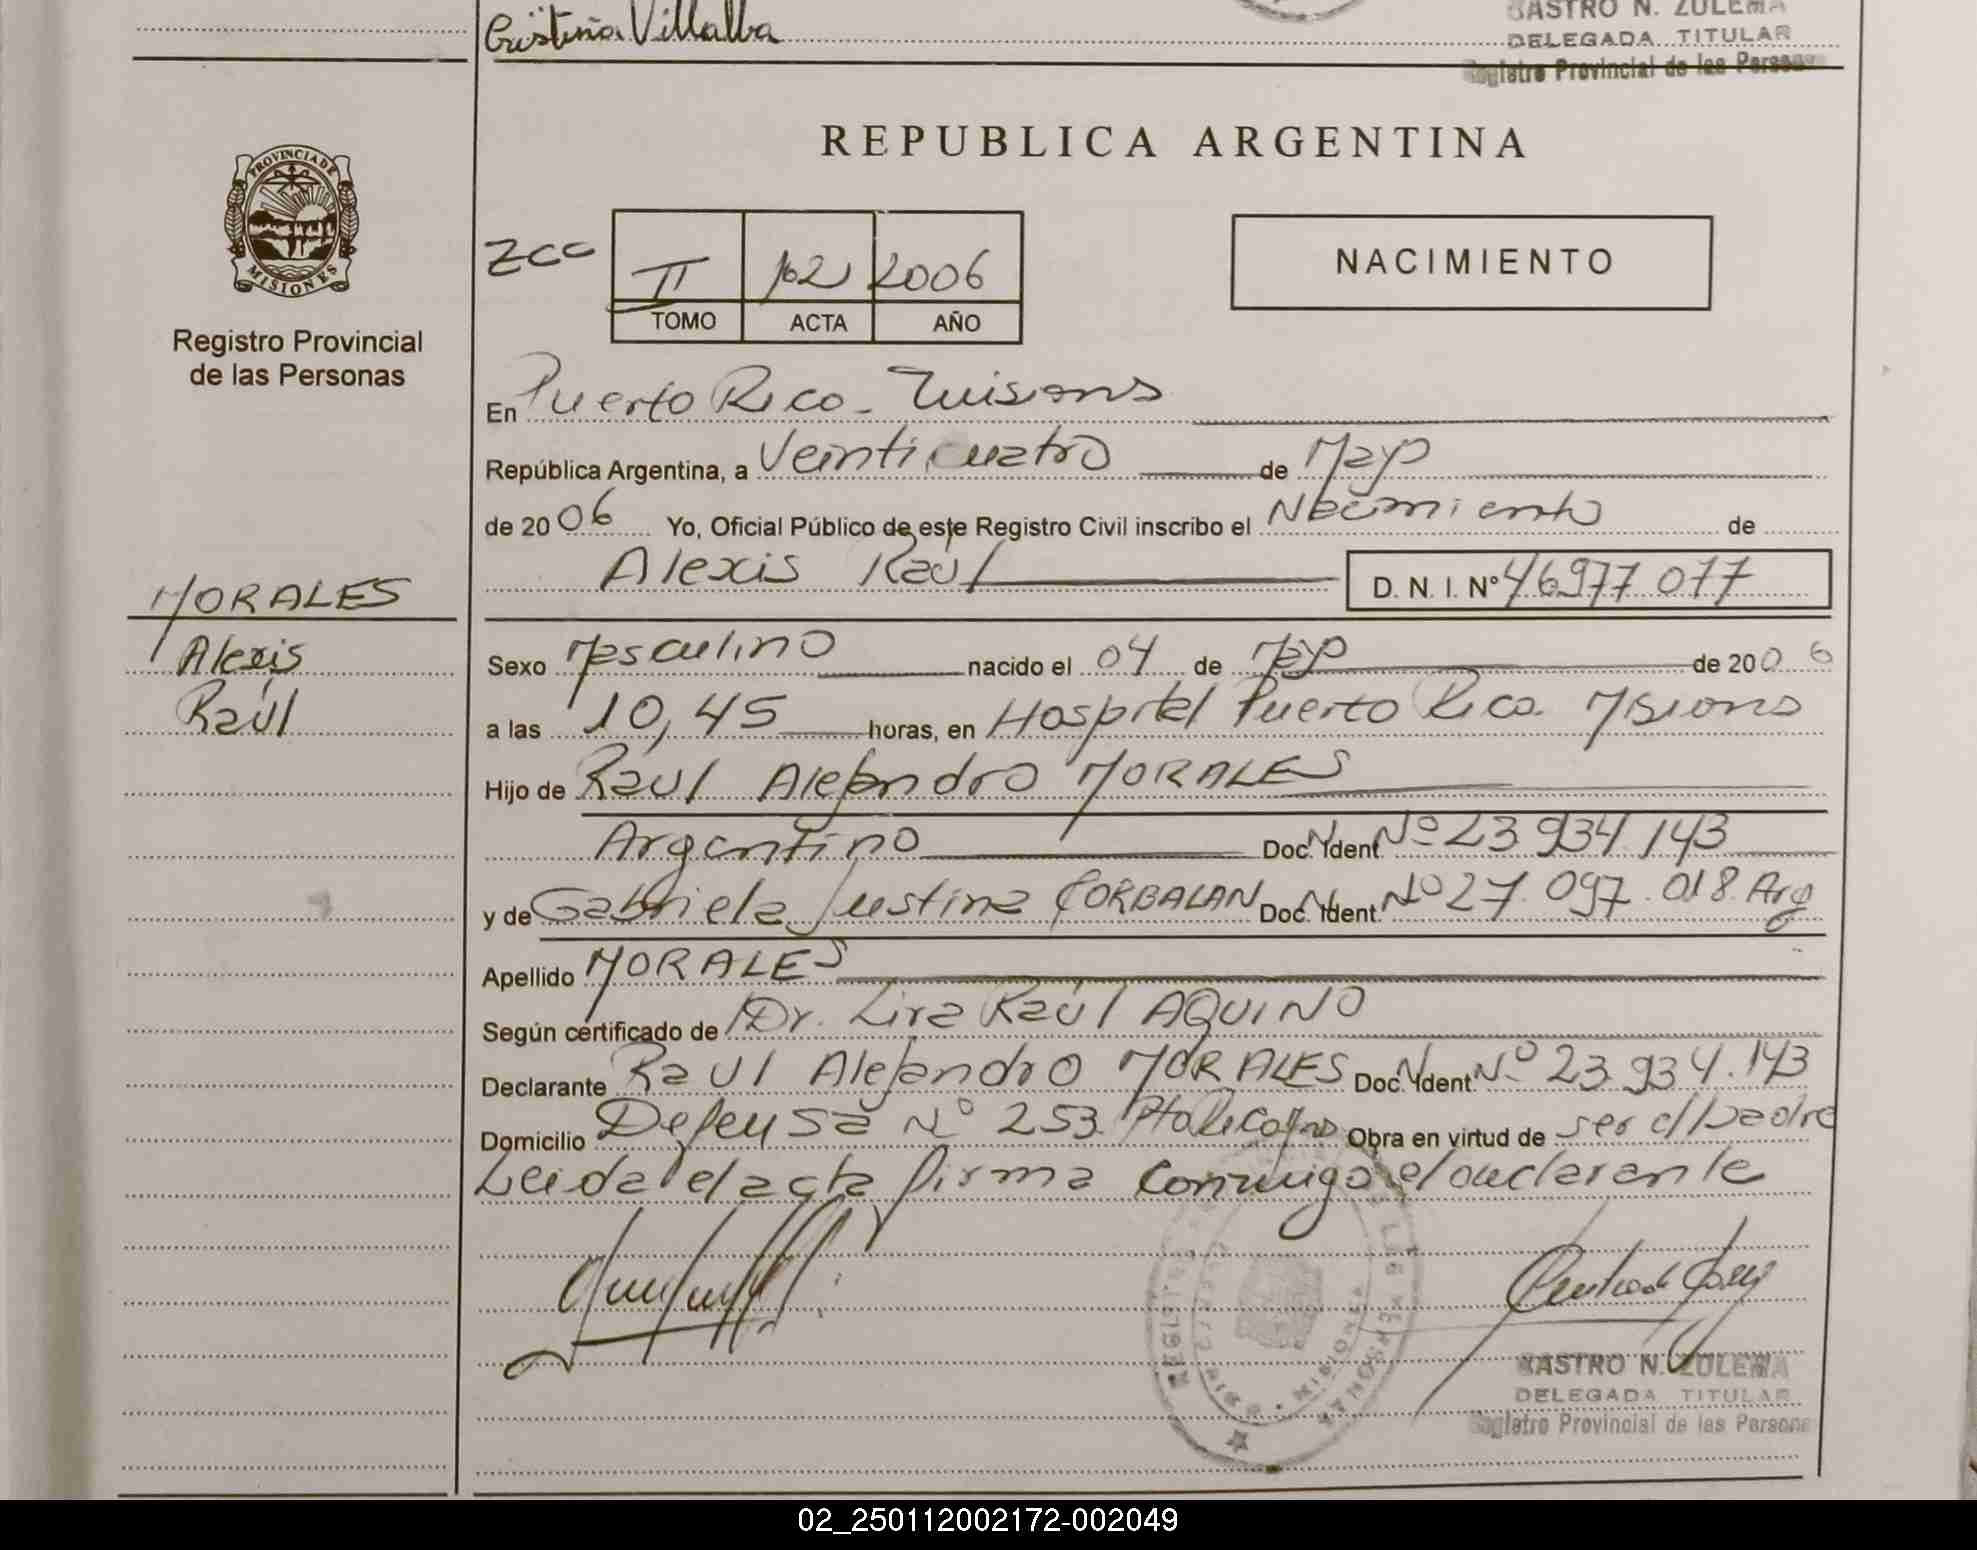 Cristina Villalba
CASTRO N. ZULEMA
DELEGADA TITULAR
Registro Provincial de las Personas
PROVINCIA DE
MISIONES
Registro Provincial
de las Personas
REPUBLICA ARGENTINA
NACIMIENTO
II 102 2006
TOMO ACTA AÑO
En Puerto Rico - Misiones
República Argentina, a Veinticuatro de Mayo
de 2006 Yo, Oficial Público de este Registro Civil inscribo el Nacimiento de
Alexis Raúl D. N. I. Nº 46977077
MORALES
Alexis
Raúl
Sexo Masculino nacido el 04 de Mayo de 2006
a las 10,45 horas, en Hospital Puerto Rico. Misiones
Hijo de Raul Alejandro MORALES
Argentino Doc. Ident. Nº 23.934.143
y de Gabriela Justina CORBALAN Doc. Ident. Nº 27.097.018 Arg
Apellido MORALES
Según certificado de Dr. Lira Raúl AQUINO
Declarante Raul Alejandro MORALES Doc. Ident. Nº 23.934.143
Domicilio Defensa Nº 253 Pto Rico Obra en virtud de ser el padre
Leida el acta firma conmigo el declarante
CASTRO N. ZULEMA
DELEGADA TITULAR
Registro Provincial de las Personas
02_250112002172-002049